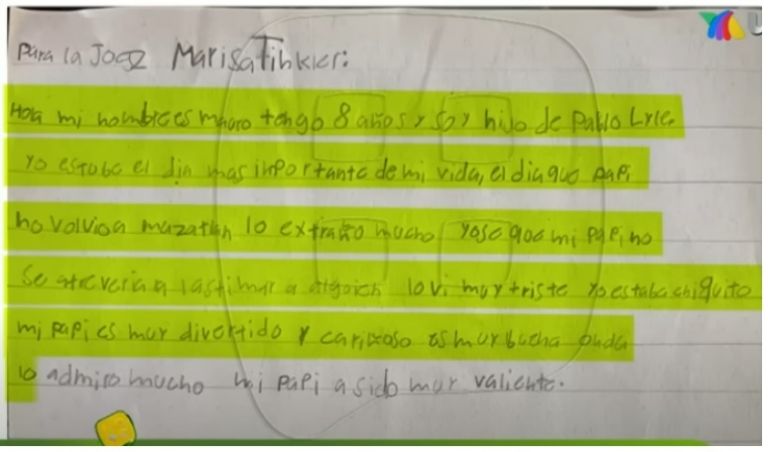 Para la Joez Marisa Tinkler:
Hola mi nombre es mauro tengo 8 años y soy hijo de Pablo Lyle.
yo estaba el dia mas importante de mi vida, el dia que papi
no volvio a mazatlan lo extraño mucho yo se que mi papi no
se atreveria a lastimar a alguien lo vi muy triste yo estaba chiquito
mi papi es muy divertido y cariñoso es muy buena onda
lo admiro mucho mi papi a sido muy valiente.